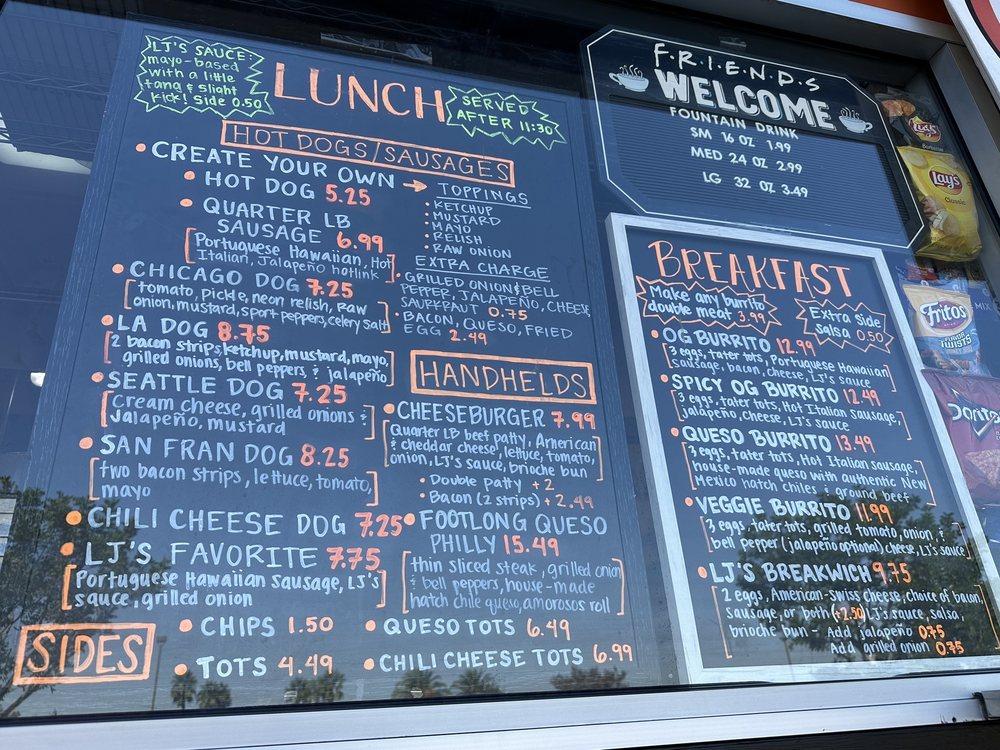 LJ'S SAUCE:
mayo-based
with a little
tang & slight
kick! side 0.50
LUNCH
SERVED
AFTER 11:30
HOT DOGS/SAUSAGES
• CREATE YOUR OWN →
• HOT DOG 5.25
• QUARTER LB
SAUSAGE 6.99
[Portuguese Hawaiian, Hot
Italian, Jalapeño hotlink]
TOPPINGS
• KETCHUP
• MUSTARD
• MAYO
• RELISH
• RAW ONION
EXTRA CHARGE
• GRILLED ONION & BELL
PEPPER, JALAPEÑO, CHEESE,
SAURKRAUT 0.75
• BACON, QUESO, FRIED
EGG 2.49
• CHICAGO DOG 7.25
[tomato, pickle, neon relish, raw
onion, mustard, sport peppers, celery salt]
• LA DOG 8.75
[2 bacon strips, ketchup, mustard, mayo,
grilled onions, bell peppers, & jalapeño]
• SEATTLE DOG 7.25
[Cream cheese, grilled onions &
Jalapeño, mustard]
• SAN FRAN DOG 8.25
[two bacon strips, lettuce, tomato,
mayo]
• CHILI CHEESE DOG 7.25
• LJ'S FAVORITE 7.75
[Portuguese Hawaiian sausage, LJ's
sauce, grilled onion]
HANDHELDS
• CHEESEBURGER 7.99
[Quarter LB beef patty, American
& cheddar cheese, lettuce, tomato,
onion, LJ's sauce, brioche bun]
• Double patty +2
• Bacon (2 strips) +2.49
• FOOTLONG QUESO
PHILLY 15.49
[thin sliced steak, grilled onion
& bell peppers, house-made
hatch chile queso, amorosos roll]
SIDES
• CHIPS 1.50
• QUESO TOTS 6.49
• TOTS 4.49
• CHILI CHEESE TOTS 6.99
F.R.I.E.N.D.S
WELCOME
FOUNTAIN DRINK
SM 16 OZ 1.99
MED 24 OZ 2.99
LG 32 OZ 3.49
BREAKFAST
Make any burrito
double meat 3.99
Extra side
salsa 0.50
• OG BURRITO 12.99
[3 eggs, tater tots, Portuguese Hawaiian
sausage, bacon, cheese, LJ's sauce]
• SPICY OG BURRITO 12.49
[3 eggs, tater tots, Hot Italian sausage,
jalapeño, cheese, LJ's sauce]
• QUESO BURRITO 13.49
[3 eggs, tater tots, Hot Italian sausage,
house-made queso with authentic New
Mexico hatch chiles & ground beef]
• VEGGIE BURRITO 11.99
[3 eggs, tater tots, grilled tomato, onion, &
bell pepper (jalapeño optional) cheese, LJ's sauce]
• LJ'S BREAKWICH 9.75
[2 eggs, American-Swiss cheese, choice of bacon,
sausage, or both (+2.50) LJ's sauce, salsa,
brioche bun - Add jalapeño 0.75
Add grilled onion 0.75]
Lay's
Barbecue
Lay's
Classic
Fritos
FLAVOR
TWISTS
MIX
Doritos